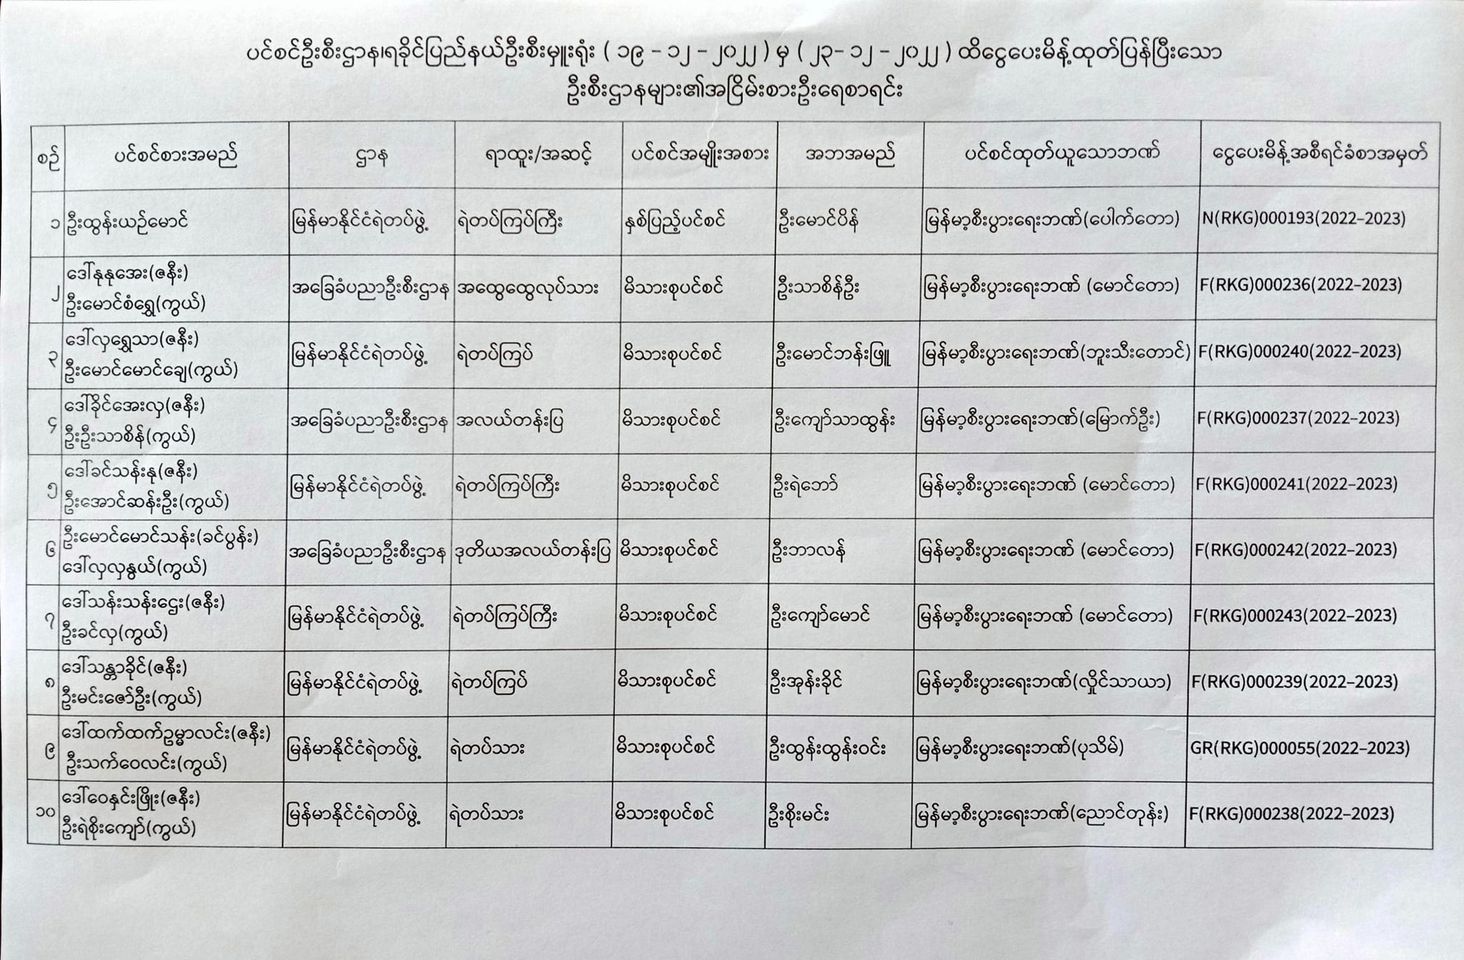 ပင်စင်ဦးစီးဌာန၊ရခိုင်ပြည်နယ်ဦးစီးမှူးရုံး ( ၁၉ - ၁၂ - ၂၀၂၂ ) မှ ( ၂၃- ၁၂ - ၂၀၂၂ ) ထိငွေပေးမိန့်ထုတ်ပြန်ပြီးသော
ဦးစီးဌာနများ၏အငြိမ်းစားဦးရေစာရင်း
စဉ် ပင်စင်စားအမည် ဌာန ရာထူး/အဆင့် ပင်စင်အမျိုးအစား အဘအမည် ပင်စင်ထုတ်ယူသောဘဏ် ငွေပေးမိန့်အစီရင်ခံစာအမှတ်
၁ ဦးထွန်းယဉ်မောင် မြန်မာနိုင်ငံရဲတပ်ဖွဲ့ ရဲတပ်ကြပ်ကြီး နှစ်ပြည့်ပင်စင် ဦးမောင်ပိန် မြန်မာ့စီးပွားရေးဘဏ်(ပေါက်တော) N(RKG)000193(2022-2023)
၂ ဒေါ်နုနုအေး(ဇနီး)
ဦးမောင်စံရွှေ(ကွယ်) အခြေခံပညာဦးစီးဌာန အထွေထွေလုပ်သား မိသားစုပင်စင် ဦးသာစိန်ဦး မြန်မာ့စီးပွားရေးဘဏ် (မောင်တော) F(RKG)000236(2022-2023)
၃ ဒေါ်လှရွှေသာ(ဇနီး)
ဦးမောင်မောင်ချေ(ကွယ်) မြန်မာနိုင်ငံရဲတပ်ဖွဲ့ ရဲတပ်ကြပ် မိသားစုပင်စင် ဦးမောင်ဘန်းဖြူ မြန်မာ့စီးပွားရေးဘဏ်(ဘူးသီးတောင်) F(RKG)000240(2022-2023)
၄ ဒေါ်ခိုင်အေးလှ(ဇနီး)
ဦးဦးသာစိန်(ကွယ်) အခြေခံပညာဦးစီးဌာန အလယ်တန်းပြ မိသားစုပင်စင် ဦးကျော်သာထွန်း မြန်မာ့စီးပွားရေးဘဏ်(မြောက်ဦး) F(RKG)000237(2022-2023)
၅ ဒေါ်ခင်သန်းနု(ဇနီး)
ဦးအောင်ဆန်းဦး(ကွယ်) မြန်မာနိုင်ငံရဲတပ်ဖွဲ့ ရဲတပ်ကြပ်ကြီး မိသားစုပင်စင် ဦးရဲဘော် မြန်မာ့စီးပွားရေးဘဏ် (မောင်တော) F(RKG)000241(2022-2023)
၆ ဦးမောင်မောင်သန်း(ခင်ပွန်း)
ဒေါ်လှလှနွယ်(ကွယ်) အခြေခံပညာဦးစီးဌာန ဒုတိယအလယ်တန်းပြ မိသားစုပင်စင် ဦးဘာလန် မြန်မာ့စီးပွားရေးဘဏ် (မောင်တော) F(RKG)000242(2022-2023)
၇ ဒေါ်သန်းသန်းဌေး(ဇနီး)
ဦးခင်လှ(ကွယ်) မြန်မာနိုင်ငံရဲတပ်ဖွဲ့ ရဲတပ်ကြပ်ကြီး မိသားစုပင်စင် ဦးကျော်မောင် မြန်မာ့စီးပွားရေးဘဏ် (မောင်တော) F(RKG)000243(2022-2023)
၈ ဒေါ်သန္တာခိုင်(ဇနီး)
ဦးမင်းဇော်ဦး(ကွယ်) မြန်မာနိုင်ငံရဲတပ်ဖွဲ့ ရဲတပ်ကြပ် မိသားစုပင်စင် ဦးအုန်းခိုင် မြန်မာ့စီးပွားရေးဘဏ်(လှိုင်သာယာ) F(RKG)000239(2022-2023)
၉ ဒေါ်ထက်ထက်ဥမ္မာလင်း(ဇနီး)
ဦးသက်ဝေလင်း(ကွယ်) မြန်မာနိုင်ငံရဲတပ်ဖွဲ့ ရဲတပ်သား မိသားစုပင်စင် ဦးထွန်းထွန်းဝင်း မြန်မာ့စီးပွားရေးဘဏ်(ပုသိမ်) GR(RKG)000055(2022-2023)
၁၀ ဒေါ်ဝေနှင်းဖြိုး(ဇနီး)
ဦးရဲစိုးကျော်(ကွယ်) မြန်မာနိုင်ငံရဲတပ်ဖွဲ့ ရဲတပ်သား မိသားစုပင်စင် ဦးစိုးမင်း မြန်မာ့စီးပွားရေးဘဏ်(ညောင်တုန်း) F(RKG)000238(2022-2023)